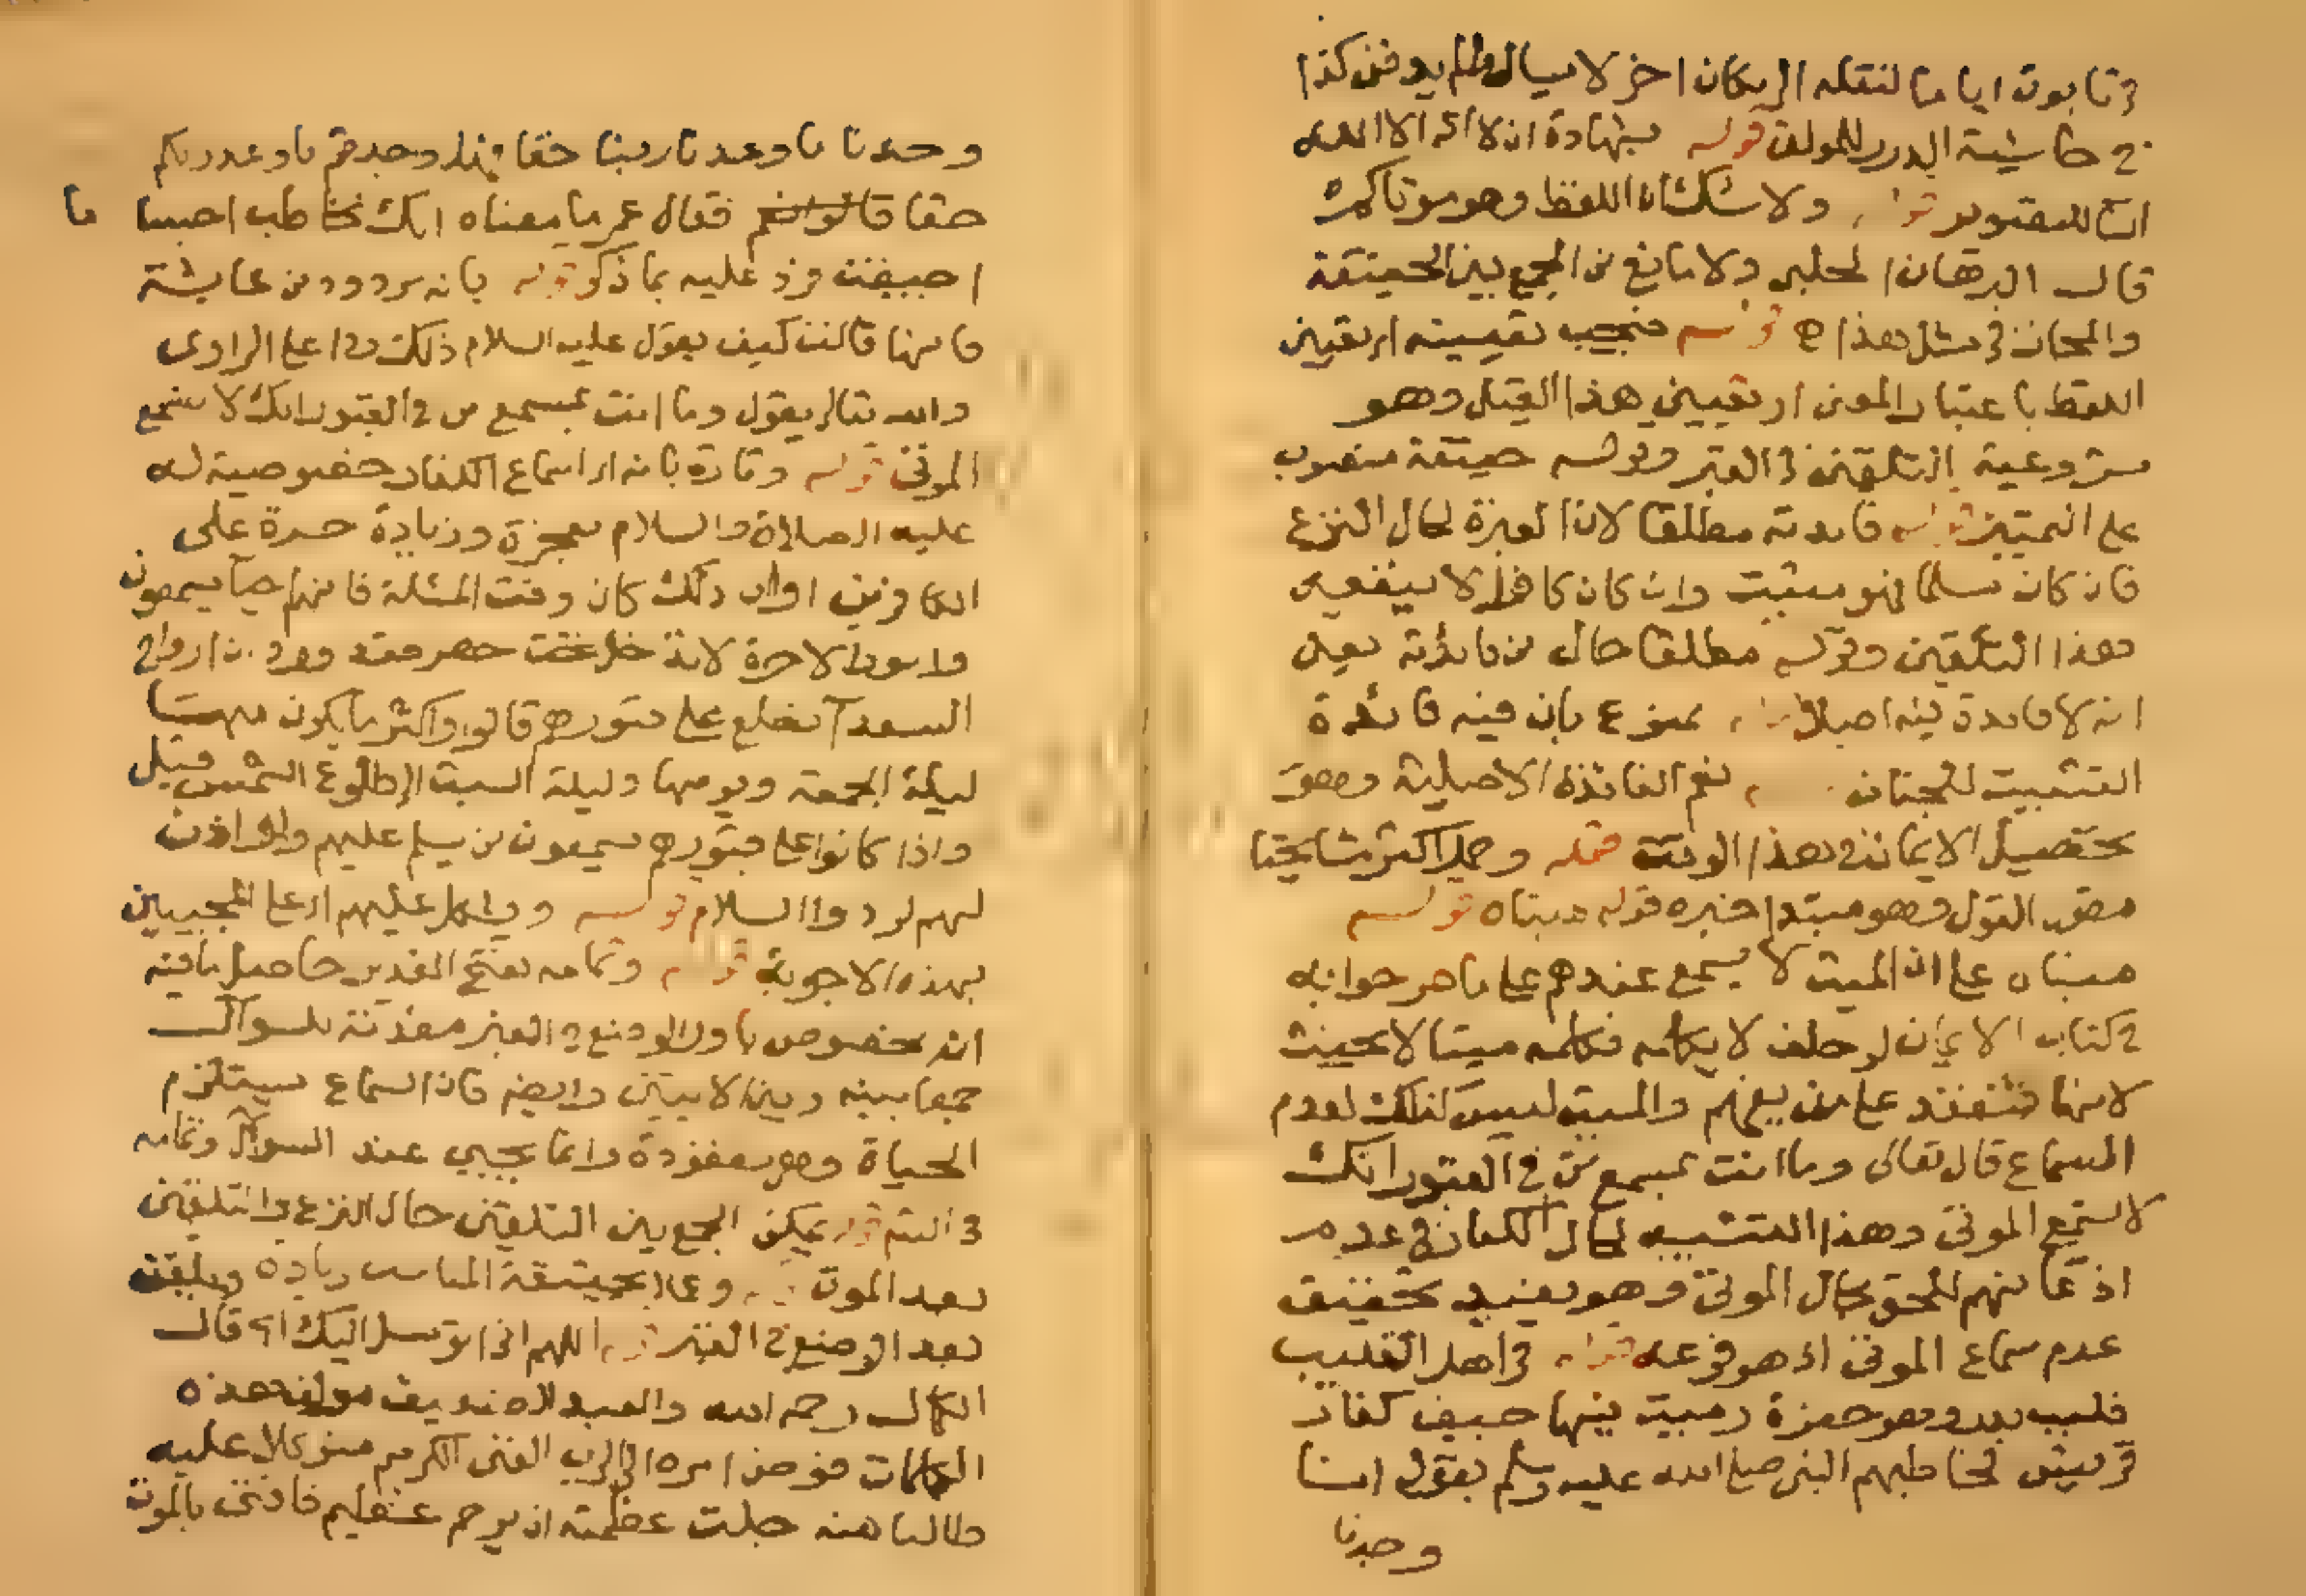 في تابوت اياما لننقله الى مكان اخر لا يسال ما لم يدفن كذا
في حاشية الدرر للمؤلف قوله بشهادة ان لا اله الا الله
قوله ولا شك ان اللفظ وهو موتاكم
قال البرهان الحلبي ولا مانع من الجمع بين الحقيقة
والمجاز في مثل هذا قوله فيجب تعيينه اي تعيين
اللفظ باعتبار المعنى او تعيين هذا القيل وهو
مشروعية التلقين في القبر وقوله حقيقة منصوب
على التمييز قوله فايدته مطلقا لان العبرة لحال النزع
فان كان مسلما فهو مثبت وان كان كافرا لا ينفعه
هذا التلقين وقوله مطلقا حال من فائدته يعني
انه لا فايدة فيه اصلا قوله ممنوع بان فيه فائدة
التثبيت للجنان نعم الفائدة الاصلية وهو
تحصيل الايمان في هذا الوقت قوله وحمل اكثر مشايخنا
مقول القول وهو مبتدا خبره قوله مبناه قوله
مبناه على ان الميت لا يسمع عندهم على ما صرحوا به
في كتاب الايمان لو حلف لا يكلمه فكلمه ميتا لا يحنث
لانها تنعقد على من يفهم والميت ليس كذلك لعدم
السماع قال تعالى وما انت بمسمع من في القبور انك
لا تسمع الموتى وهذا التشبيه لحال الكفار في عدم
اذعانهم للحق بحال الموتى وهو يفيد تحقيق
عدم سماع الموتى اذ هو فرعه قوله في اهل القليب
قليب بدر وهو حفرة رميت فيها جيف كفار
قريش فخاطبهم النبي صلى الله عليه وسلم بقول انا
وجدنا
وجدنا ما وعدنا ربنا حقا فهل وجدتم ما وعد ربكم
حقا قالوا نعم فقال عمر ما معناه انك تخاطب اجسا ما
اجيفت فرد عليه بما ذكر قوله بانه مردود من عايشة
فانها قالت كيف يقول عليه السلام ذلك ردا على الراوي
والله تعالى يقول وما انت بمسمع من في القبور انك لا تسمع
الموتى قوله وتارة بانه اي اسماع الكفار خصوصية له
عليه الصلاة والسلام معجزة وزيادة حسرة على
الكافرين او ان ذلك كان وقت المسئلة فانهم احيا يسمعون
السعداء تطلع على قبورهم قالوا واكثر ما يكون منها
ليلة الجمعة ويومها وليلة السبت الى طلوع الشمس قيل
واذا كانوا على قبورهم يسمعون من يسلم عليهم ولو اذن
لهم لردوا السلام قوله ويشكل عليهم اي على المجيبين
بهذه الاجوبة قوله وتمامه بفتح القدير حاصل ما فيه
انه مخصوص باول الوضع في القبر مقدمة للسوال
جمعا بينه وبين الايتين وايضا فان السماع يستلزم
الحياة وهي مفقودة وانما يحيى عند السوال وتمامه
في النهر قوله يمكن الجمع بين التلقين حال النزع والتلقين
بعد الموت قوله وعملا بحقيقة المناسب زيادة ويلقن
بعد الوضع في القبر قوله اللهم اني اتوسل اليك اي قال
الكمال رحمه الله والعبد الضعيف مؤلف هذه
الكلمات فوض امره الى الرب الغني الكريم متوكلا عليه
طالبا منه جلت عظمته ان يرحم عظيم فاقتي بالموت